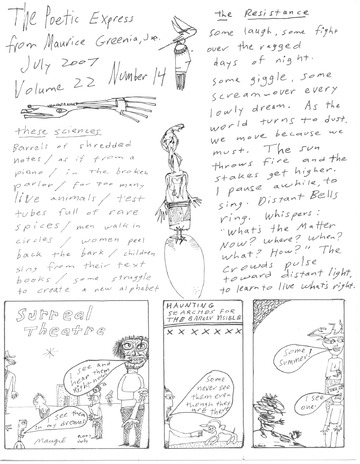 The Poetic Express
from Maurice Greenia, Jr.
July 2007
Volume 22 Number 14
these sciences
Barrels of shredded
notes / as if from a
piano / in the broken
parlor / far too many
live animals / test
tubes full of rare
spices / men walk in
circles / women peel
back the bark / children
sing from their text
books / some struggle
to create a new alphabet
the Resistance
some laugh, some fight
over the ragged
days of night.
some giggle, some
scream—over every
lowly dream. As the
world turns to dust,
we move because we
must. The sun
throws fire and the
stakes get higher.
I pause awhile, to
sing. Distant Bells
ring. Whispers:
"What's the Matter
Now? Where? When?
What? How?" The
Crowds pulse
toward distant light,
to learn to live what's right.
Surreal
Theatre
I see and
hear them
Right now
I see them
in my dreams
Maugré
HAUNTING
SEARCHES FOR
THE BARELY VISIBLE
x x x x x x x
some
never see
them even
though they
are there
Some
Summer!
I see
one!